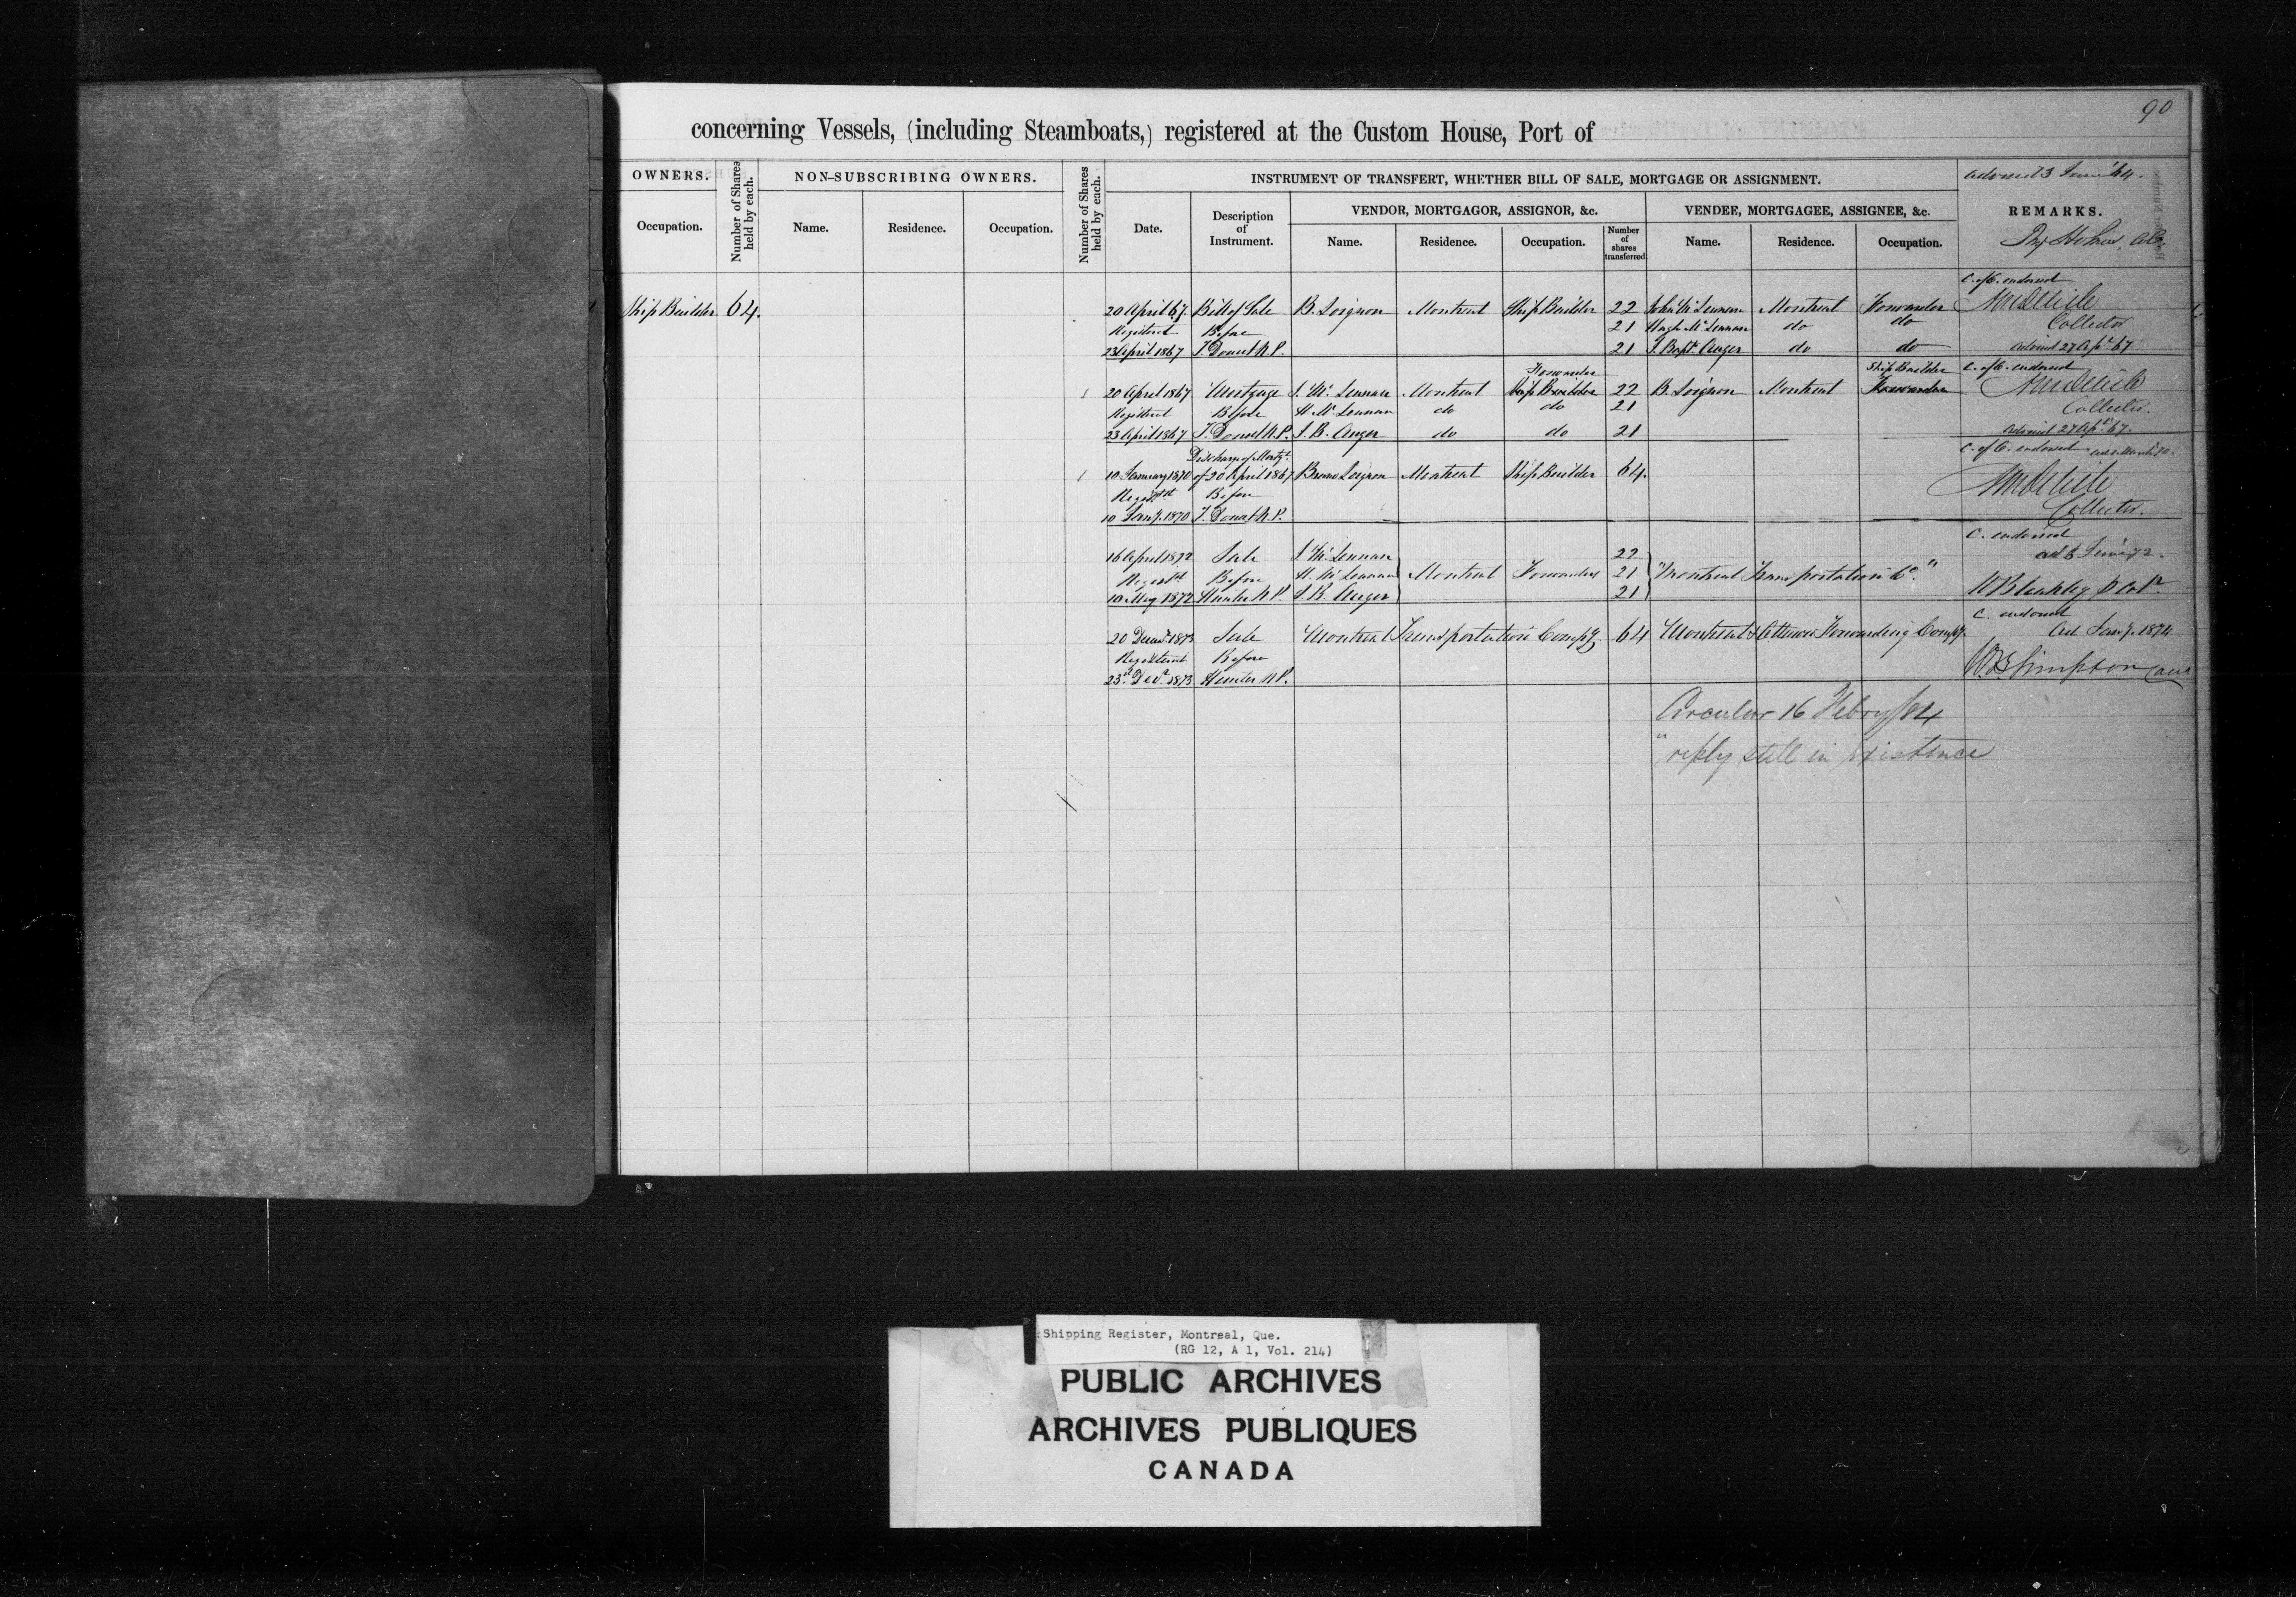 90
concerning Vessels, (including Steamboats,) registered at the Custom House, Port of
OWNERS.
Occupation.
Number of Shares held by each.
NON-SUBSCRIBING OWNERS.
Name. Residence. Occupation.
Number of Shares held by each.
INSTRUMENT OF TRANSFERT, WHETHER BILL OF SALE, MORTGAGE OR ASSIGNMENT.
Date. Description of Instrument.
VENDOR, MORTGAGOR, ASSIGNOR, &c.
Name. Residence. Occupation. Number of shares transferred
VENDEE, MORTGAGEE, ASSIGNEE, &c.
Name. Residence. Occupation.
advised 3 June 64.
REMARKS.
C. of C. endorsed
Ship Builder 64. 20 April 67. Bill of Sale B. Loignon Montreal Ship Builder 22 John McLennan Montreal Forwarder AMDelisle
Registered Before 21 Hugh McLennan do do Collector
23 April 1867 T. Doucet N.P. 21 J. Bapt. Auger do do advised 27 Apl. 67
Forwarder Ship Builder C. of C. endorsed
20 April 1867 Mortgage J. McLennan Montreal Ship Builder 22 B. Loignon Montreal Forwarder AMDelisle
Registered Before H. McLennan do do 21 Collector.
23 April 1867 T. Doucet N.P. J. B. Auger do do 21 advised 27 Apl. 67.
Discharge of Mortge. C. of C. endorsed
10 January 1870 of 20 April 1867 Bruno Loignon Montreal Ship Builder 64. AMDelisle
Regist'd Before
10 Jany. 1870 T. Doucet N.P. Collector.
C. endorsed
16 April 1872 Sale J. McLennan 22 ad 6 June 72.
Regist'd Before H. McLennan Montreal Forwarders 21 "Montreal Transportation Co."
10 May 1872 Hunter N.P. J. B. Auger 21 WBleakley
C. endorsed
20 Decemr. 1873 Sale Montreal Transportation Compy 64 Montreal & Ottawa Forwarding Compy. Ad Jany. 1874
Registered Before
23rd Decr. 1873 Hunter N.P. WBSimpson
Circular 16 Febry/84
" reply still in existence
Shipping Register, Montreal, Que.
(RG 12, A 1, Vol. 214)
PUBLIC ARCHIVES
ARCHIVES PUBLIQUES
CANADA